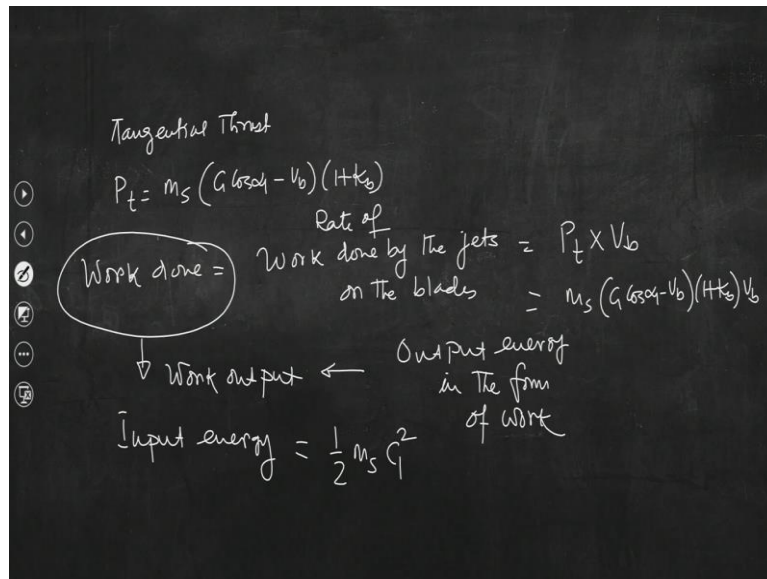 Tangential Thrust
P_t = m_s (C_1 cosα_1 - V_b) (1+K_b)
Work done =
Rate of
Work done by the jets = P_t × V_b
on the blades = m_s (C_1 cosα_1 - V_b) (1+K_b) V_b
↓ Work output ← Output energy
in the form
of work
Input energy = 1/2 m_s C_1^2